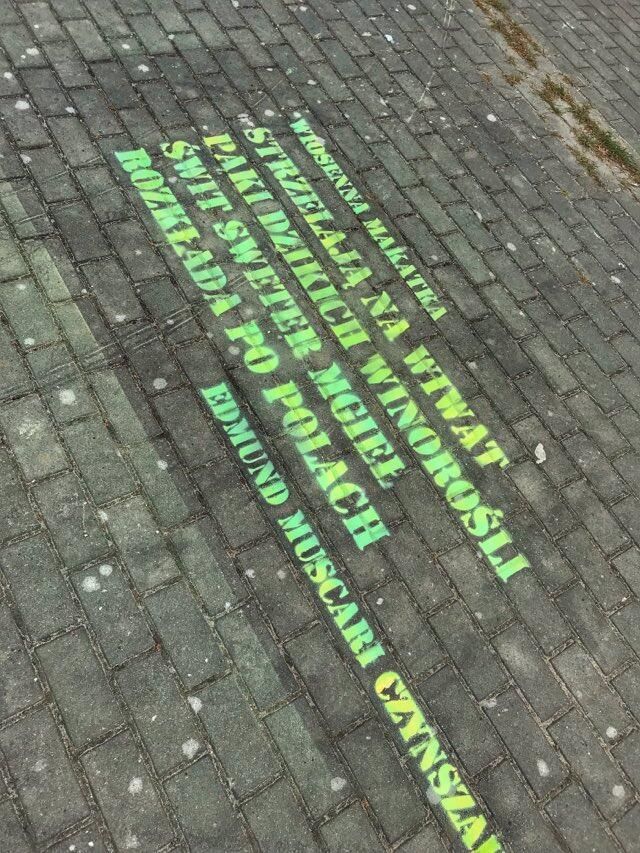 WIOSENNA MAKATKA
STRZELAJĄ NA WIWAT
PAKI DZIKICH WINOROŚLI
ŚWIT SWETER MGIEŁ
ROZKŁADA PO POLACH
EDMUND MUSCARI CZYNSZAK